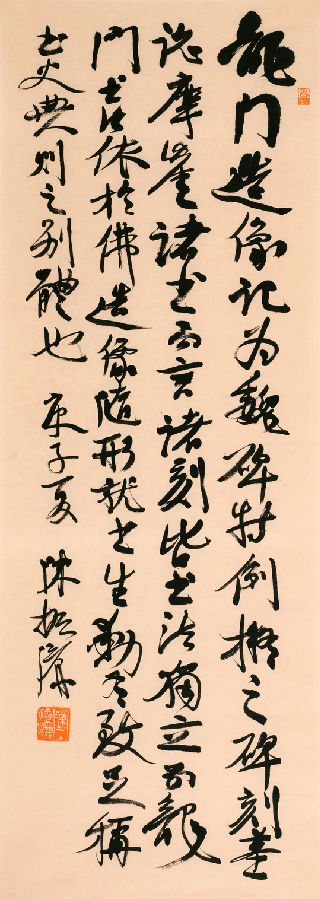 龍门造像记为魏碑特例擬之碑刻墓
誌摩崖諸书而言諸刻皆书法獨立而龍
门书法依於佛造像隨形就书生動有致足稱
书史典则之别體也 庚子夏 陈振濂